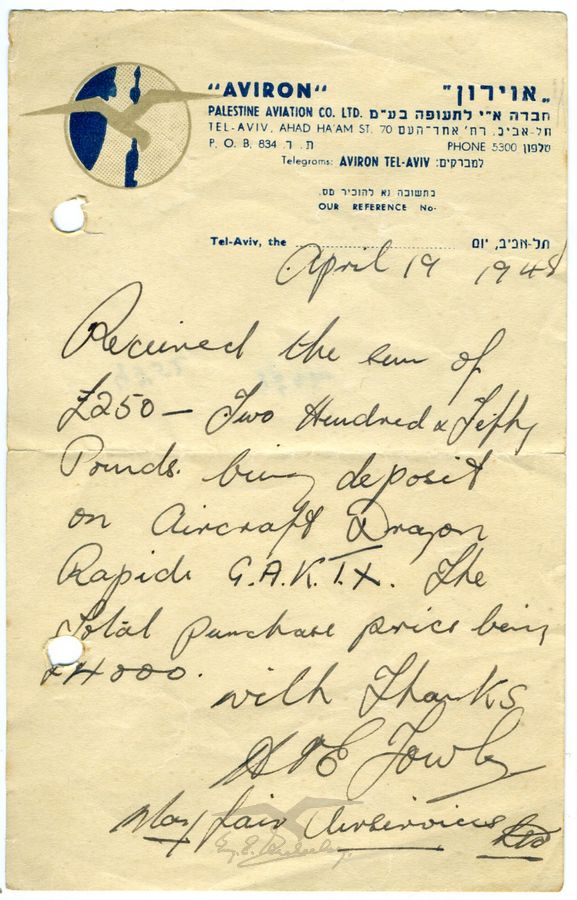 "AVIRON"
„אוירון"
PALESTINE AVIATION CO. LTD. חברה א"י לתעופה בע"מ
TEL-AVIV, AHAD HA'AM ST. 70 תל-אביב, רח' אחד-העם
P. O. B. 834 ת. ד. PHONE 5300 טלפון
Telegrams: AVIRON TEL-AVIV :למברקים
בתשובה נא להזכיר מס.
OUR REFERENCE No.
Tel-Aviv, the תל-אביב, יום
April 19 1948
Received the sum of
£250 — Two Hundred & Fifty
Pounds. being deposit
on Aircraft Dragon
Rapide G.A.K.T.X. The
Total purchase price being
£4000.
with Thanks
Mayfair Airservices Ltd